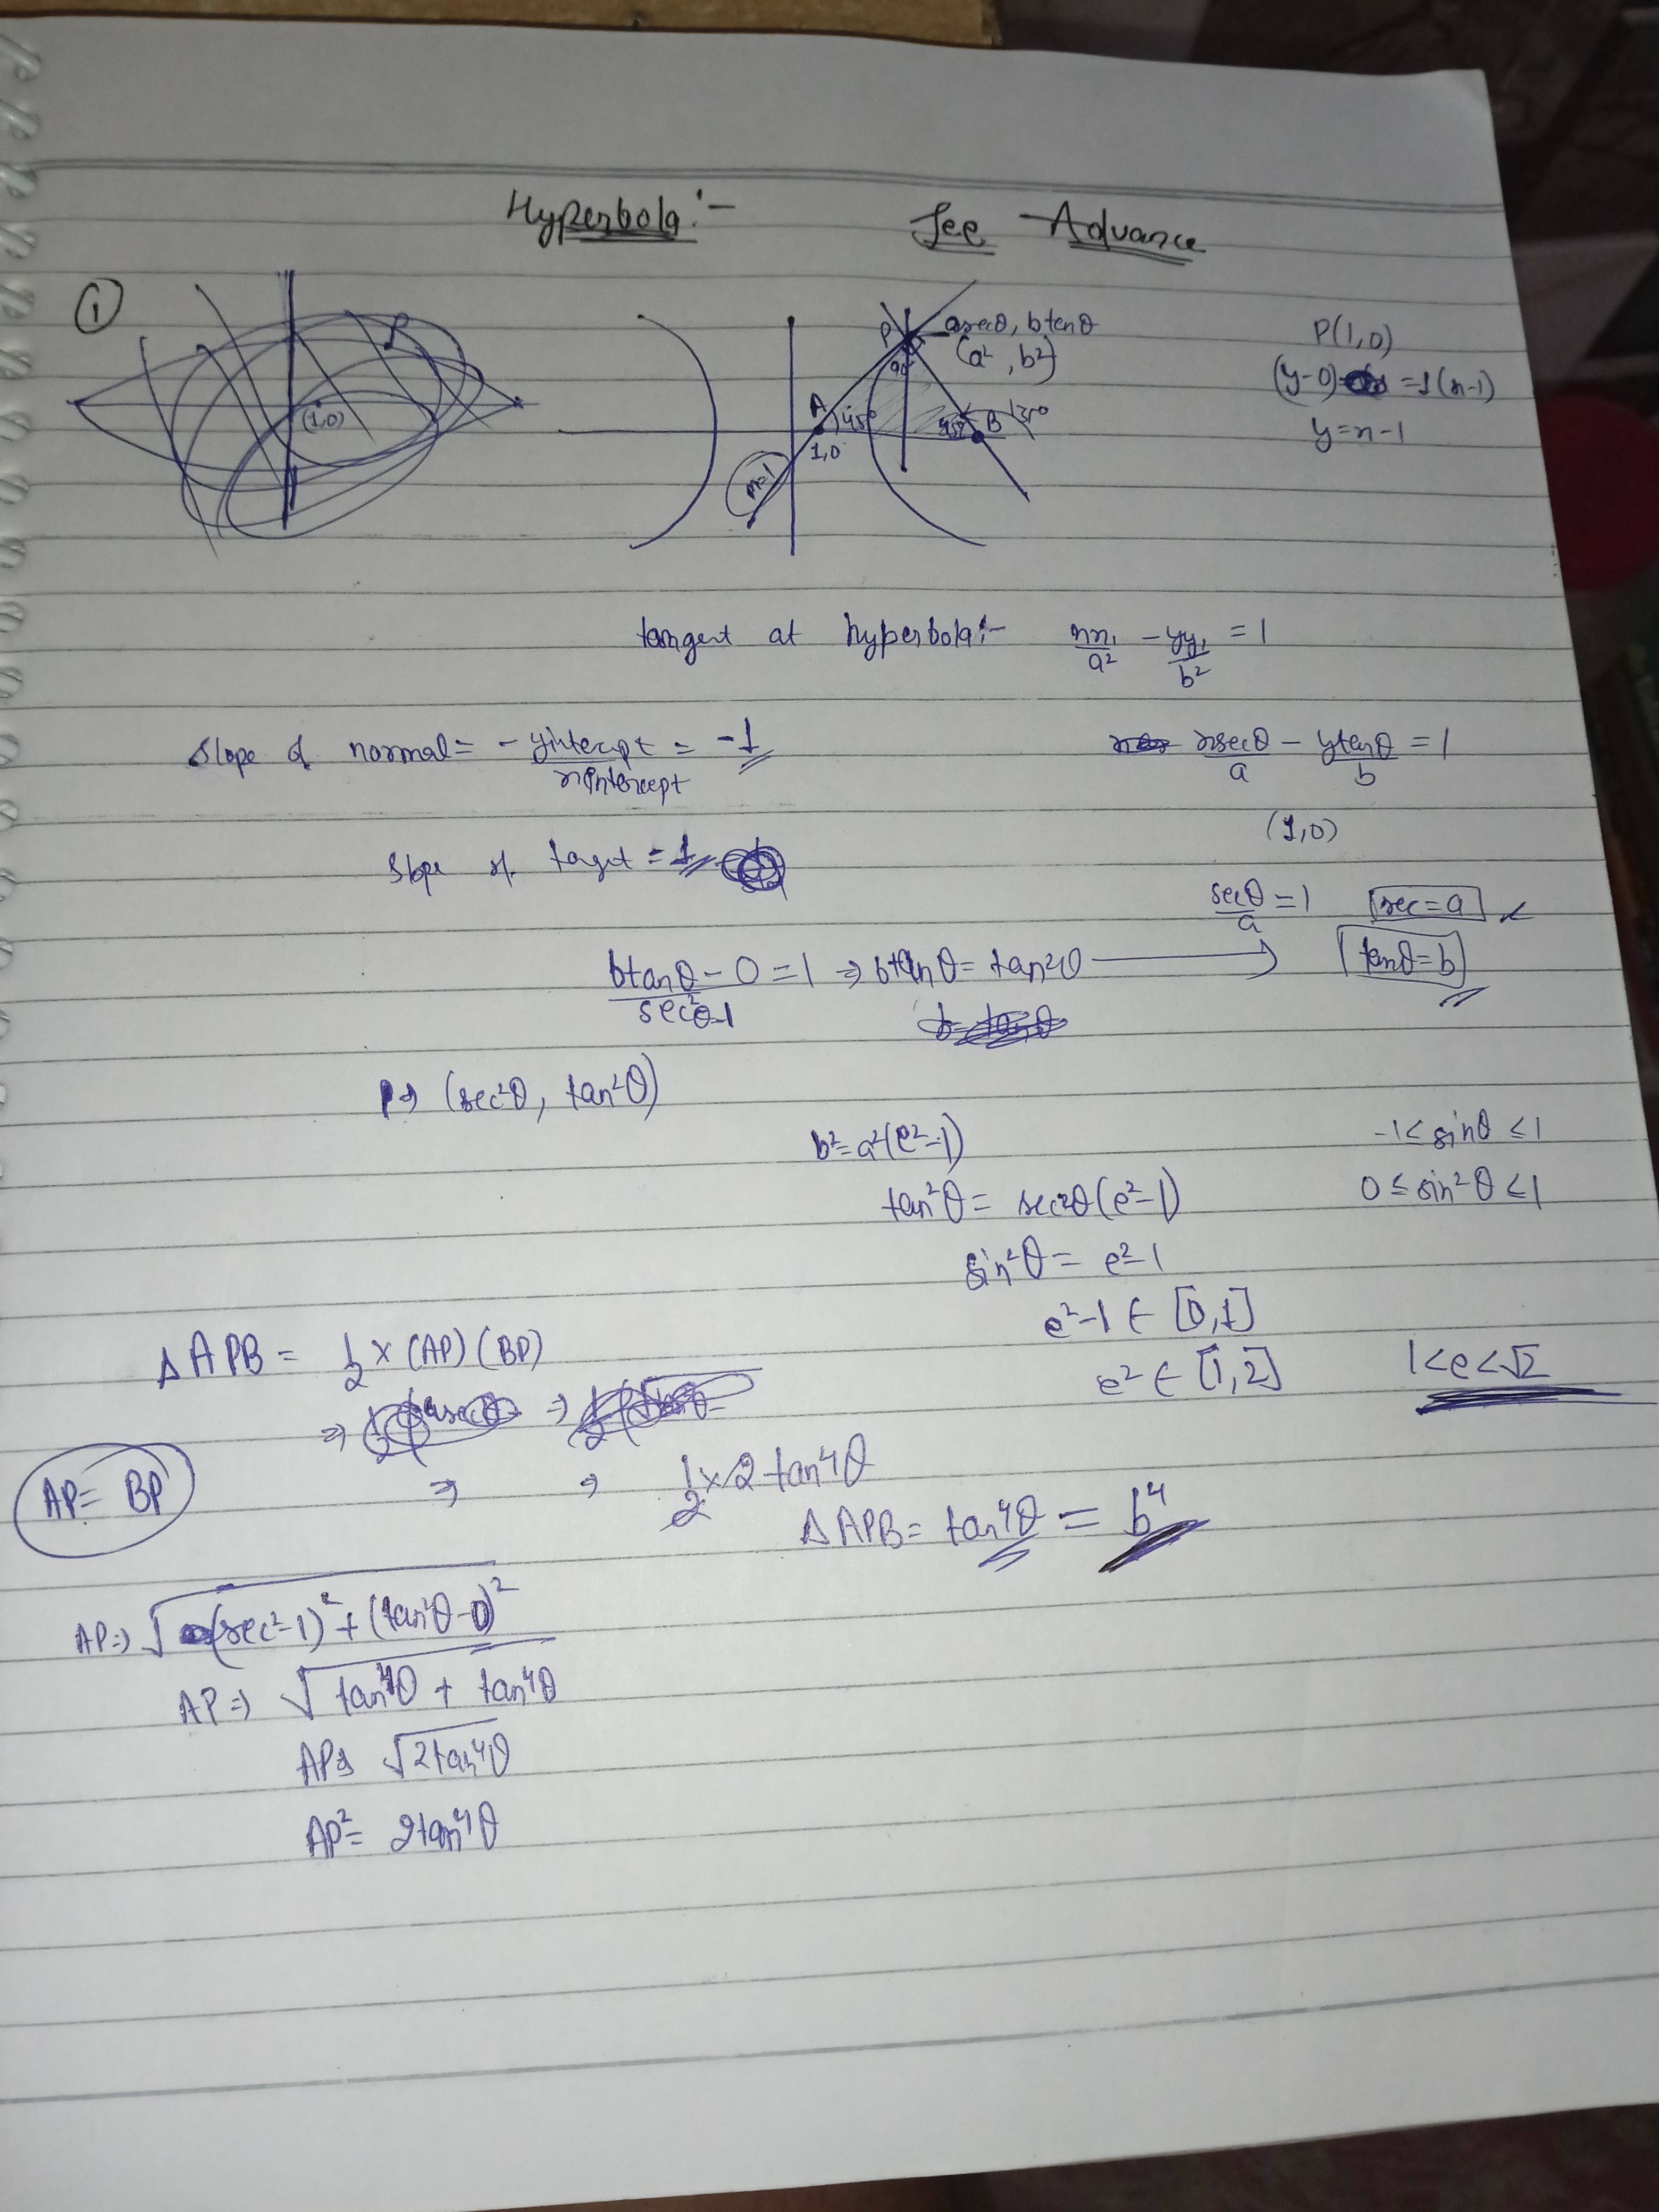 Hyperbola:- Jee Advance
①
(1,0)
P
asecθ, btanθ
(a², b²)
90°
A
45°
45°
B
135°
1,0
m=1
P(1,0)
(y-0) = 1(x-1)
y=x-1
tangent at hyperbola:- xx₁/a² - yy₁/b² = 1
Slope of normal = - yintercept/xintercept = -1
xsecθ/a - ytanθ/b = 1
(1,0)
Slope of taget = 1
secθ/a = 1 sec=a
btanθ - 0/sec²θ-1 = 1 ⇒ btanθ = tan²θ → tanθ=b
P⇒ (sec²θ, tan²θ)
b²=a²(e²-1)
-1≤ sinθ ≤1
tan²θ = sec²θ(e²-1)
0 ≤ sin²θ ≤1
sin²θ = e²-1
e²-1 ∈ [0,1]
e² ∈ [1,2]
1<e<√2
Δ APB = 1/2 × (AP) (BP)
⇒ ⇒
AP= BP
⇒ ⇒ 1/2 × 2 tan⁴θ
Δ APB = tan⁴θ = b⁴
AP⇒ √(sec²-1)² + (tan²θ-0)²
AP⇒ √tan⁴θ + tan⁴θ
AP⇒ √2tan⁴θ
AP² = 2tan⁴θ